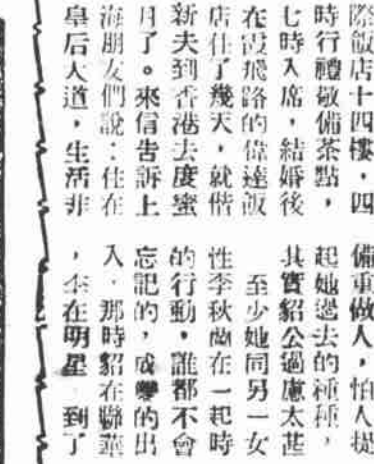 際飯店十四樓,四
時行禮敬備茶點,
七時入席,結婚後
在霞飛路的偉達飯
店住了幾天,就偕
新夫到香港去度蜜
月了。來信告訴上
海朋友們說:住在
皇后大道,生活非
備重做人,怕人提
起她過去的種種,
其實貂公過慮太甚
至少她同另一女
性李秋在一起時
的行動,誰都不會
忘記的,成雙的出
入,那時貂在聯華
,李在明星 到了